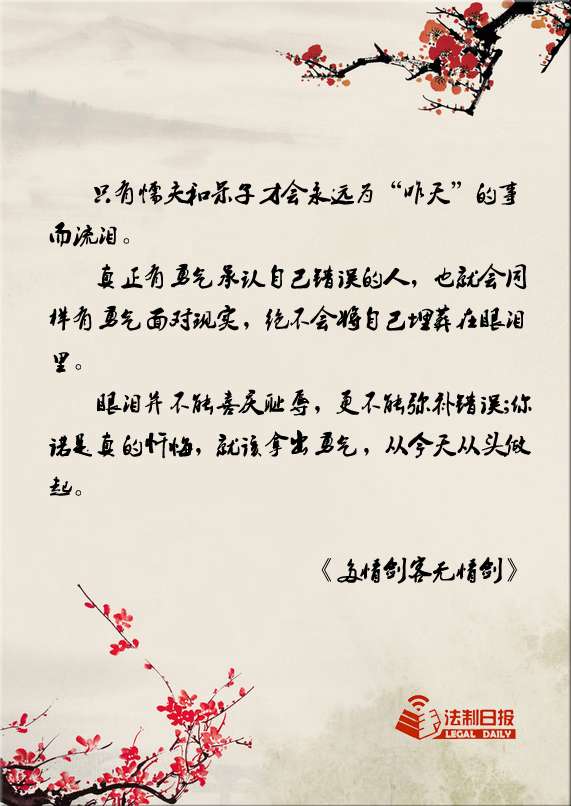 只有懦夫和呆子才会永远为“昨天”的事
而流泪。
真正有勇气承认自己错误的人，也就会同
样有勇气面对现实，绝不会将自己埋葬在眼泪
里。
眼泪并不能喜庆耻辱，更不能弥补错误;你
诺是真的忏悔，就该拿出勇气，从今天从头做
起。
《多情剑客无情剑》
法制日报
LEGAL DAILY